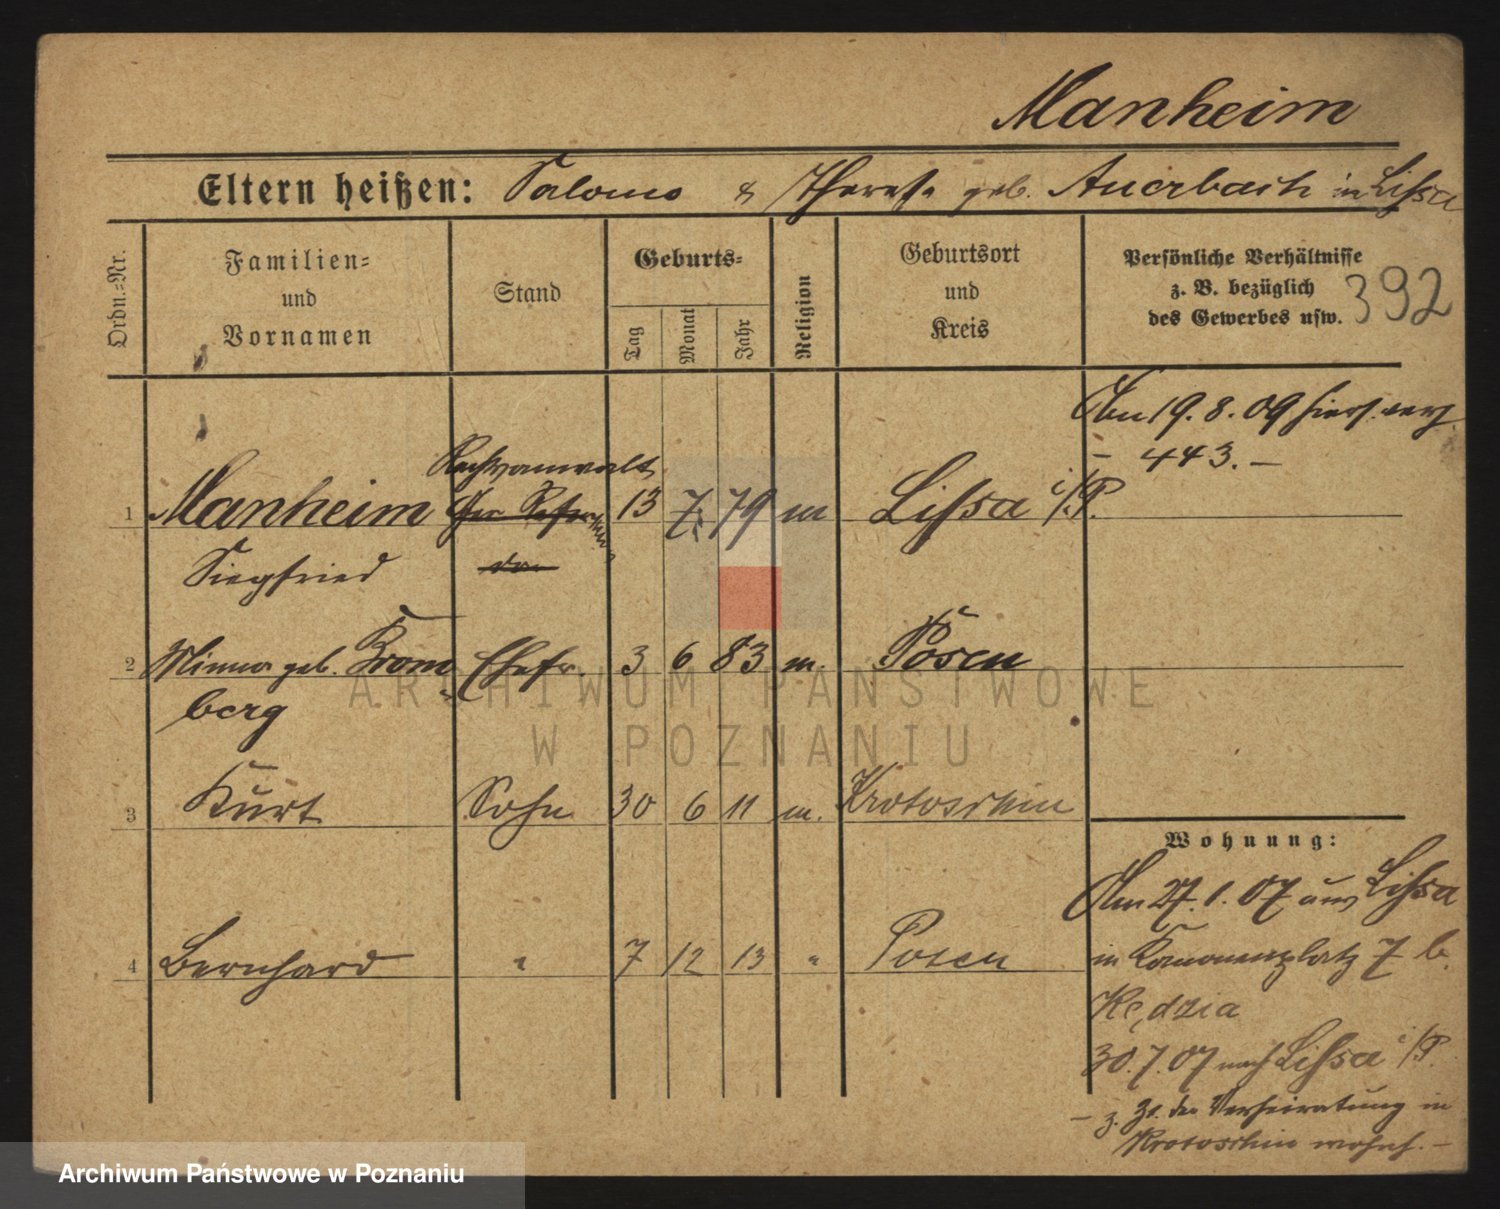 Manheim
Eltern heißen: Salomo & Therese geb. Auerbach in Lissa
Ordn.-Nr.
Familien-
und
Vornamen
Stand
Geburts-
Tag
Monat
Jahr
Religion
Geburtsort
und
Kreis
Persönliche Verhältnisse
z. B. bezüglich
des Gewerbes usw.
392
Am 19. 8. 09 hiers. verh.
- 443. -
Rechtsanwalt
1 Manheim Ger. Refer 13 7. 79 m Lissa i/P.
Siegfried
2 Minna geb. Krom- Ehefr. 3 6 83 m. Posen
berg
3 Kurt Sohn 30 6 11 m. Krotoschin
4 Bernhard " 7 12 13 " Posen
Wohnung:
Am 27. 1. 07 aus Lissa
in Kanonenplatz 7 b.
Kędzia
30. 7. 07 nach Lissa i/P.
- z. Zt. der Verheiratung in
Krotoschin wohnh. -
ARCHIWUM PAŃSTWOWE
W POZNANIU
Archiwum Państwowe w Poznaniu